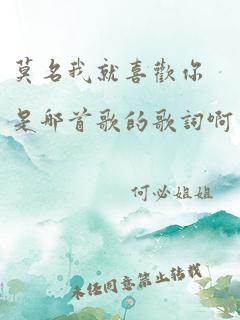 莫名我就喜歡你
是那首歌的歌詞啊
何必姐姐
未經同意禁止轉載